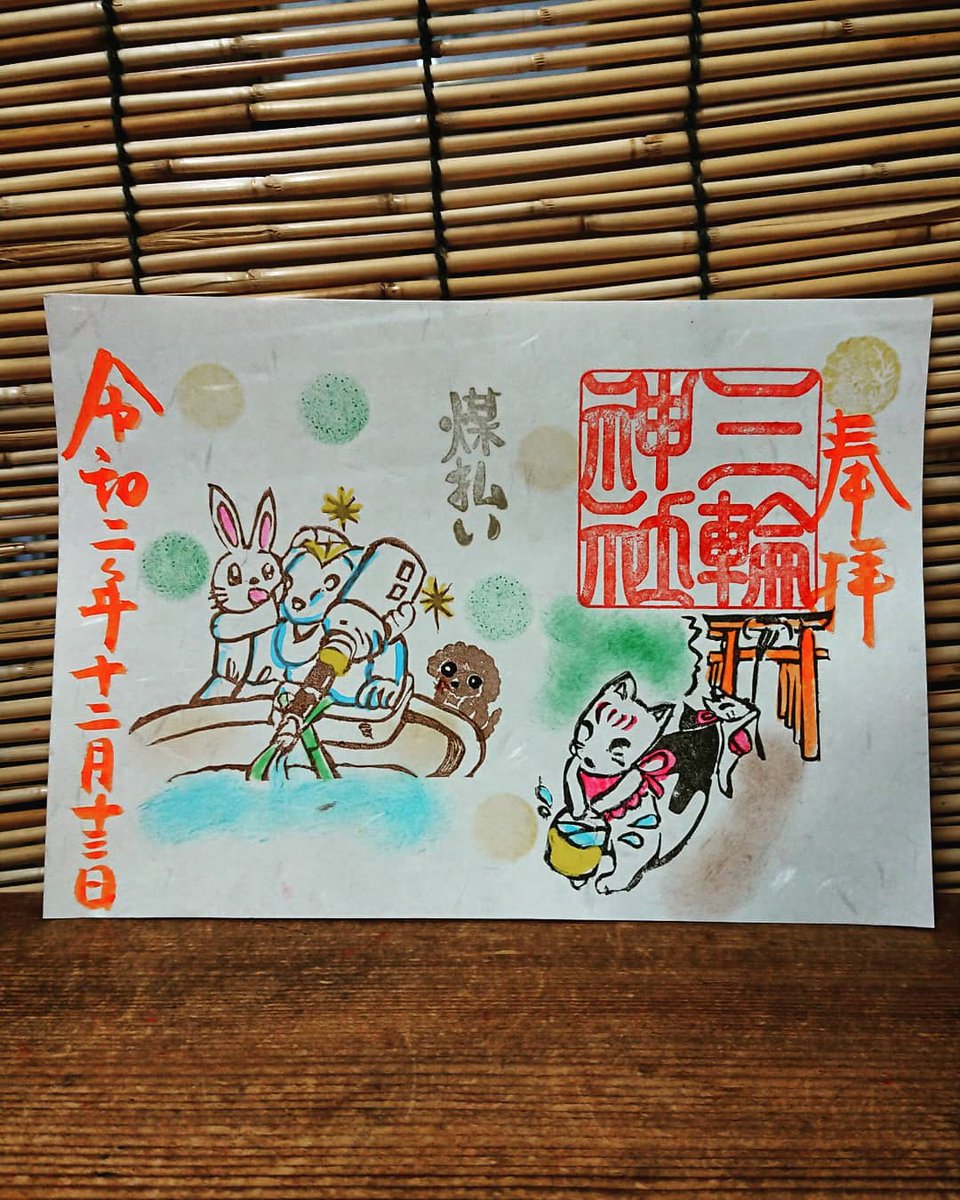 奉拝
三輪
神社
煤払い
令和二年十二月十三日